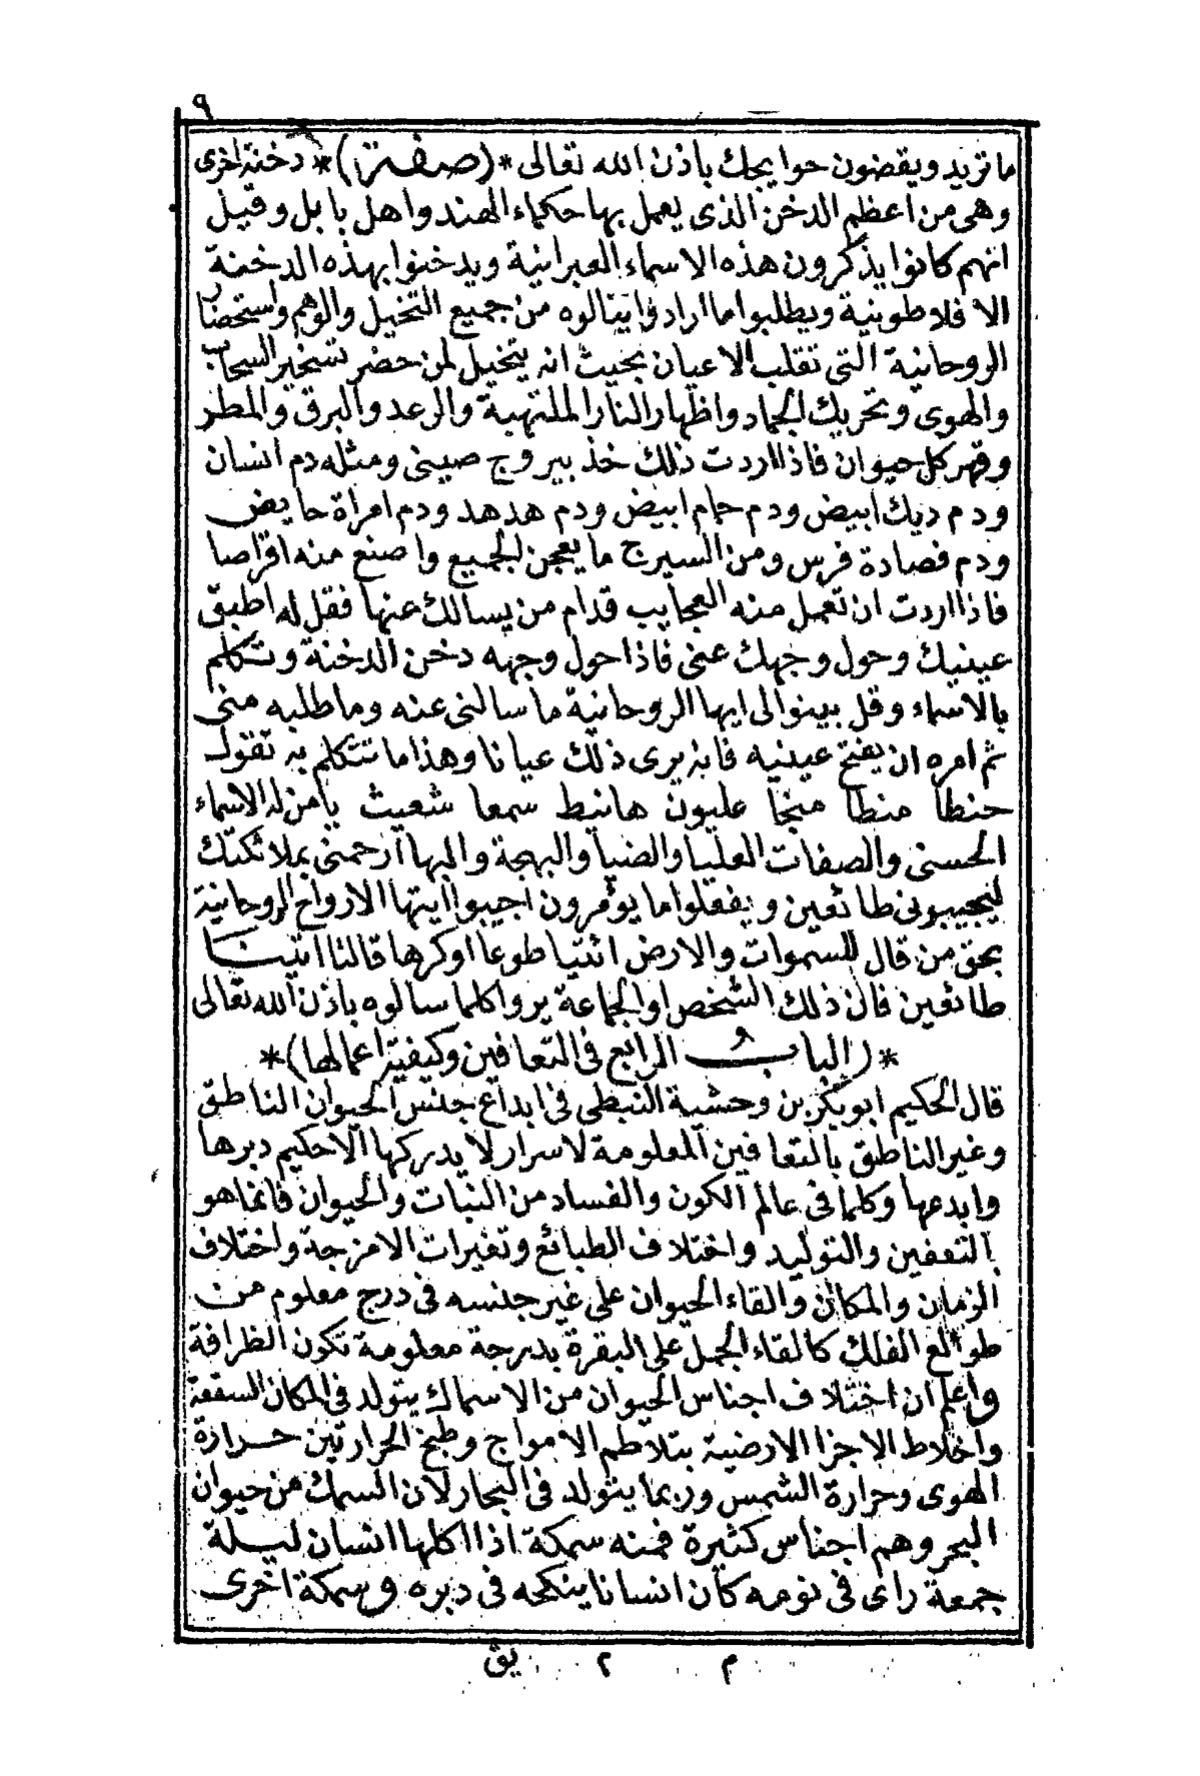 ٩
ما تريد ويقضون حوايجك باذن الله تعالى *(صفة)* دخنة اخرى
وهى من اعظم الدخن الذى يعمل بها حكماء الهند واهل بابل وقيل
انهم كانوا يذكرون هذه الاسماء العبرانية ويدخنوا بهذه الدخنة
الافلاطونية ويطلبوا ما ارادوا ينالوه من جميع التخيل والوهم واستحضار
الروحانية التى تقلب الاعيان بحيث انه يتخيل لمن حضر تسخير السحاب
والهوى وتحريك الجماد واظهار النار الملتهبة والرعد والبرق والمطر
وقهر كل حيوان فاذا اردت ذلك خذ بيروج صينى ومثله دم انسان
ودم ديك ابيض ودم حمام ابيض ودم هدهد ودم امراة حايض
ودم فصادة فرس ومن السيرج ما يعجن الجميع واصنع منه اقراصا
فاذا اردت ان تعمل منه العجايب قدام من يسالك عنها فقل له اطبق
عينيك وحول وجهك عنى فاذا حول وجهه دخن الدخنة وتكلم
بالاسماء وقل بينوا لى ايها الروحانية ما سالنى عنه وما طلبه منى
ثم امره ان يفتح عينيه فانه يرى ذلك عيانا وهذا ما تتكلم به تقول
حنطا منطا منجا عليون هانيط سمعا شعيث يا من له الاسماء
الحسنى والصفات العليا والضيا والبهجة والبها ارحمنى بملائكتك
ليجيبونى طائعين ويفعلوا ما يؤمرون اجيبوا ايتها الارواح الروحانية
بحق من قال للسموات والارض ائتيا طوعا او كرها قالتا اتينا
طائعين فان ذلك الشخص او الجماعة يروا كلما سالوه باذن الله تعالى
*(الباب الرابع فى التعافين وكيفية اعمالها)*
قال الحكيم ابو بكر بن وحشية النبطى فى ابداع جنس الحيوان الناطق
وغير الناطق بالتعافين المعلومة لاسرار لا يدركها الا حكيم دبرها
وابدعها وكلما فى عالم الكون والفساد من النبات والحيوان فانما هو
بالتعفين والتوليد واختلاف الطبائع وتغيرات الامزجة واختلاف
الزمان والمكان والقاء الحيوان على غير جنسه فى درج معلوم من
طوالع الفلك كالقاء الجمل على البقرة بدرجة معلومة تكون الظرافة
واعلم ان اختلاف اجناس الحيوان من الاسماك يتولد فى المكان السقعة
واخلاط الاجزا الارضية بتلاطم الامواج وطبخ الحرارتين حرارة
الهوى وحرارة الشمس وربما يتولد فى البحار لان السمك من حيوان
البحر وهم اجناس كثيرة فمنه سمكة اذا اكلها انسان ليلة
جمعة راى فى نومه كان انسانا ينكحه فى دبره وسمكة اخرى
م ٢ يق